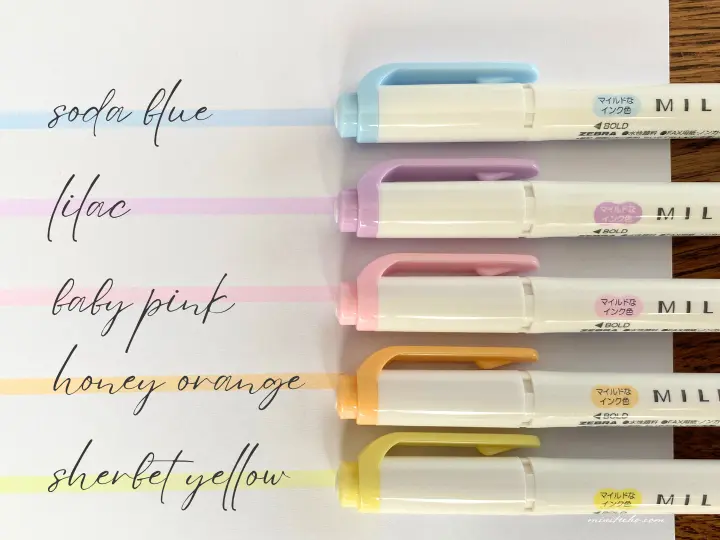 soda blue
マイルドな
インク色
MIL
◀BOLD
ZEBRA ●水性顔料 ●FAX用紙・ノンカ
lilac
マイルドな
インク色
MIL
◀BOLD
baby pink
マイルドな
インク色
MIL
◀BOLD
honey orange
マイルドな
インク色
MIL
◀BOLD
ZEBRA ●水性顔料 ●FAX用紙・ノンカ
sherbet yellow
マイルドな
インク色
MIL